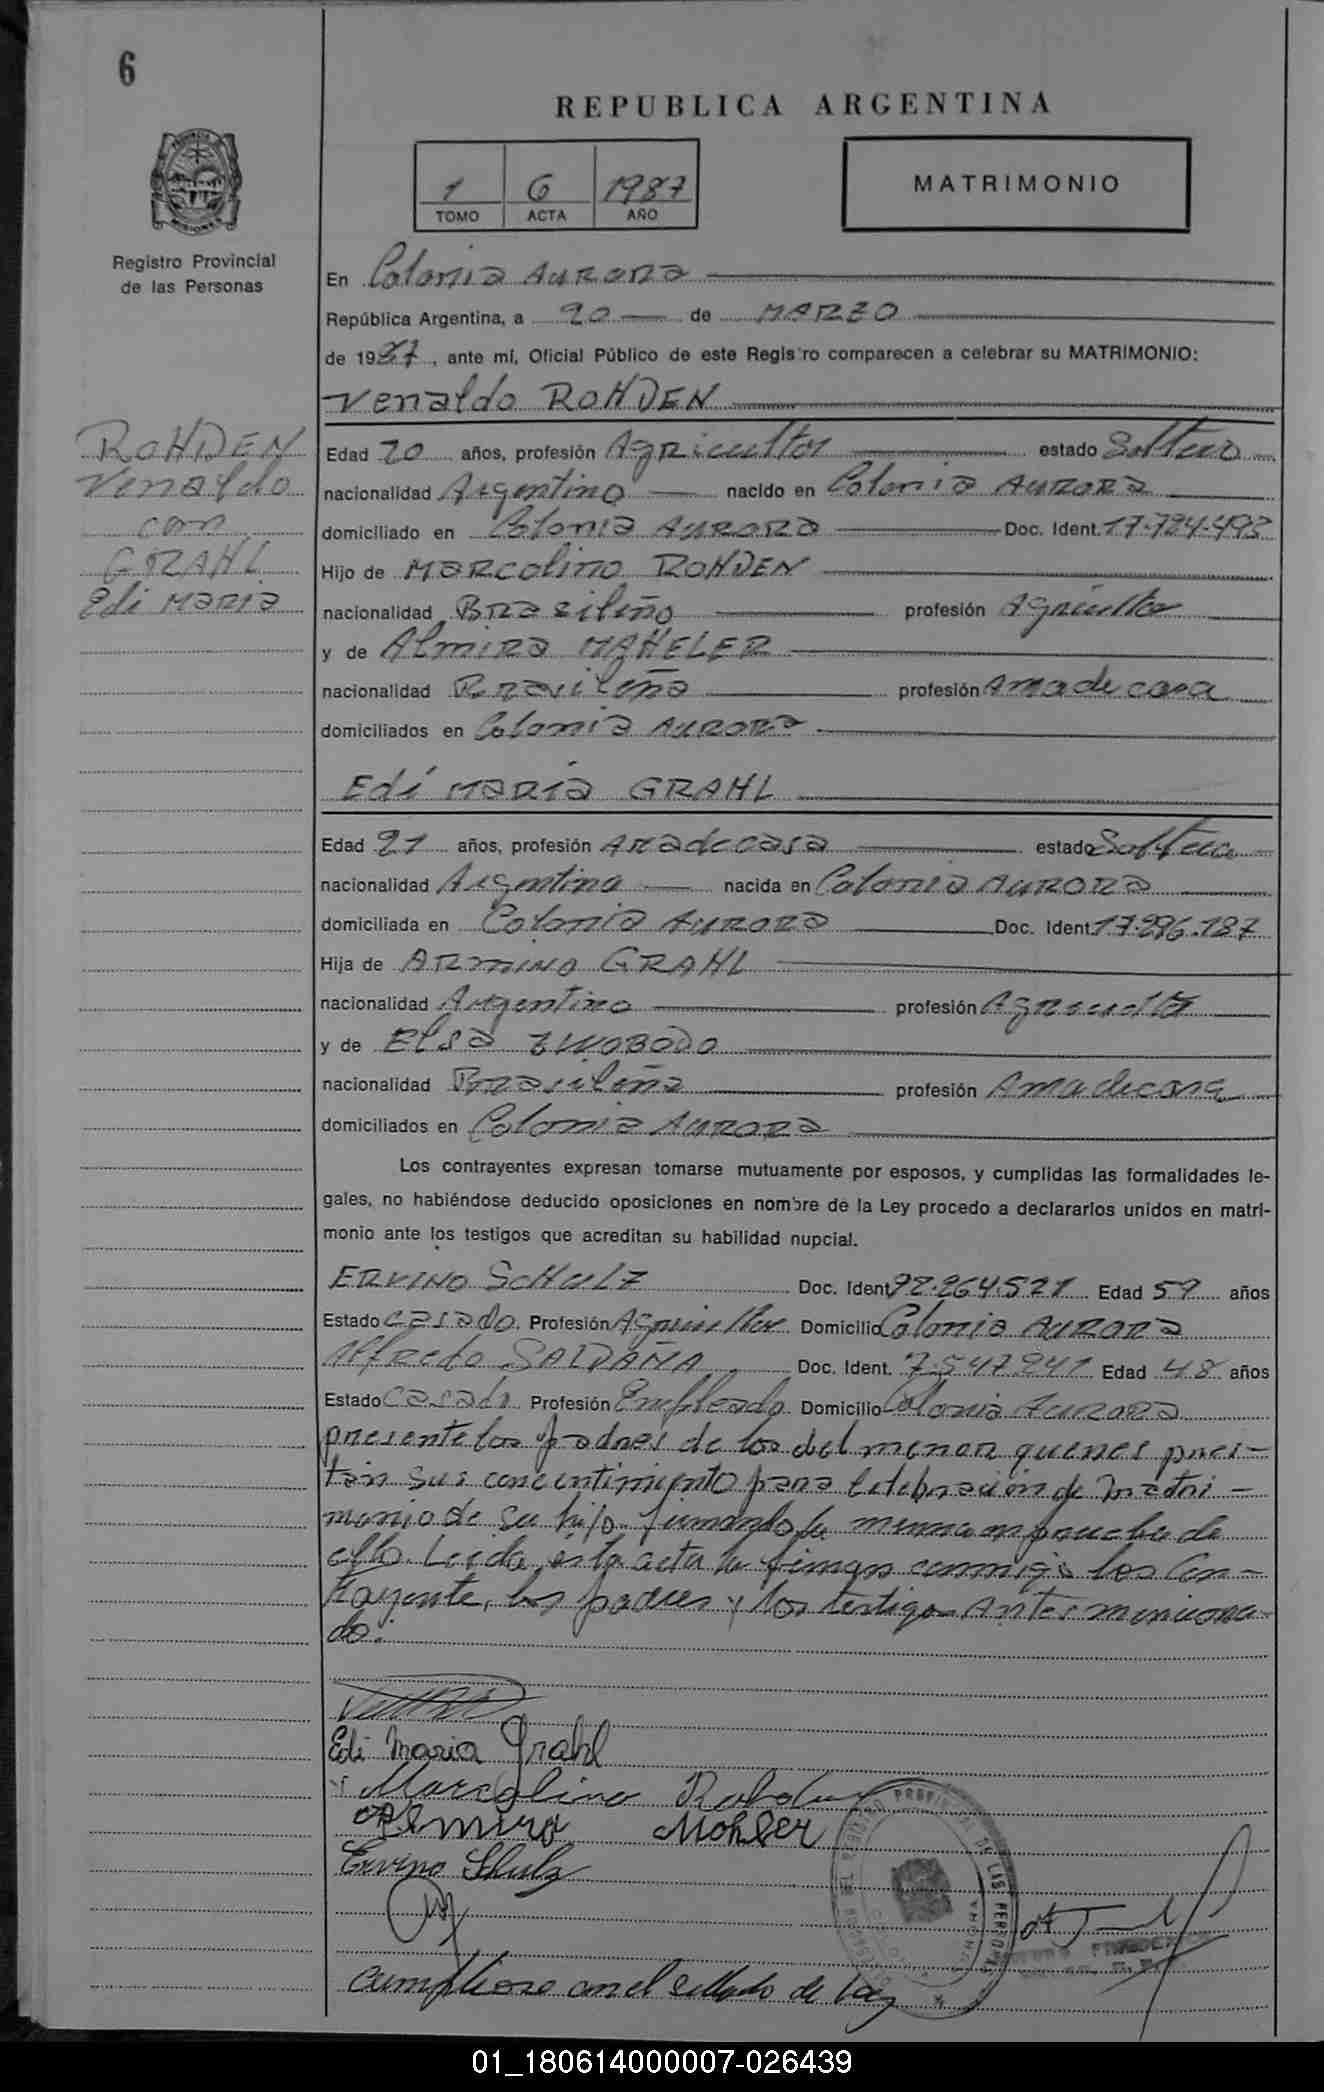 6
REPUBLICA ARGENTINA
1 6 1987
TOMO ACTA AÑO
MATRIMONIO
PROVINCIA DE
MISIONES
Registro Provincial
de las Personas
ROHDEN
Venaldo
con
GRAHL
Edi Maria
En Colonia Aurora
República Argentina, a 20 de MARZO
de 1987, ante mí, Oficial Público de este Registro comparecen a celebrar su MATRIMONIO:
Venaldo ROHDEN
Edad 20 años, profesión Agricultor estado Soltero
nacionalidad Argentino nacido en Colonia Aurora
domiciliado en Colonia Aurora Doc. Ident. 17.724.493
Hijo de Marcolino ROHDEN
nacionalidad Brasileño profesión Agricultor
y de Almira MAHELER
nacionalidad Brasileña profesión Ama de casa
domiciliados en Colonia Aurora
Edí María GRAHL
Edad 21 años, profesión Amadecasa estado Soltera
nacionalidad Argentina nacida en Colonia Aurora
domiciliada en Colonia Aurora Doc. Ident 17.296.187
Hija de ARMINO GRAHL
nacionalidad Argentino profesión Agricultor
y de Elsa ZWOBODO
nacionalidad Brasileña profesión Amadecasa
domiciliados en Colonia Aurora
Los contrayentes expresan tomarse mutuamente por esposos, y cumplidas las formalidades le-
gales, no habiéndose deducido oposiciones en nombre de la Ley procedo a declararlos unidos en matri-
monio ante los testigos que acreditan su habilidad nupcial.
ERVINO SCHULZ Doc. Ident 92.264.521 Edad 59 años
Estado casado Profesión Agricultor Domicilio Colonia Aurora
Alfredo SALDAÑA Doc. Ident. 7.547.941 Edad 48 años
Estado casado Profesión Empleado Domicilio Colonia Aurora
presente los padres de los del menor quienes pres-
tan sus concentimiento para celebración de matri-
monio de su hijo firmando la misma en prueba de
ello. Leida esta acta la firman conmigo los Con-
trayente, los padres y los testigos antes menciona-
do.
Edi Maria Grahl
Marcolino Rohden
Almira Mohler
Ervino Shulz
REGISTRO PROVINCIAL DE LAS PERSONAS
cumpliose con el sellado de Ley
01_180614000007-026439